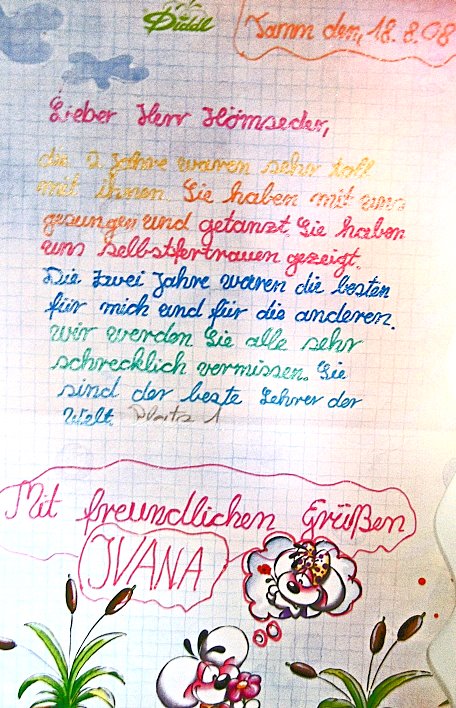 Diddl
Tamm den, 18.8.08
Lieber Herr Hömseder,
die 2 Jahre waren sehr toll
mit ihnen. Sie haben mit uns
gesungen und getanzt. Sie haben
uns selbstfertrauen gezeigt.
Die zwei Jahre waren die besten
für mich und für die anderen.
wir werden Sie alle sehr
schrecklich vermissen. Sie
sind der beste Lehrer der
Welt.
Mit freundlichen Grüßen
IVANA